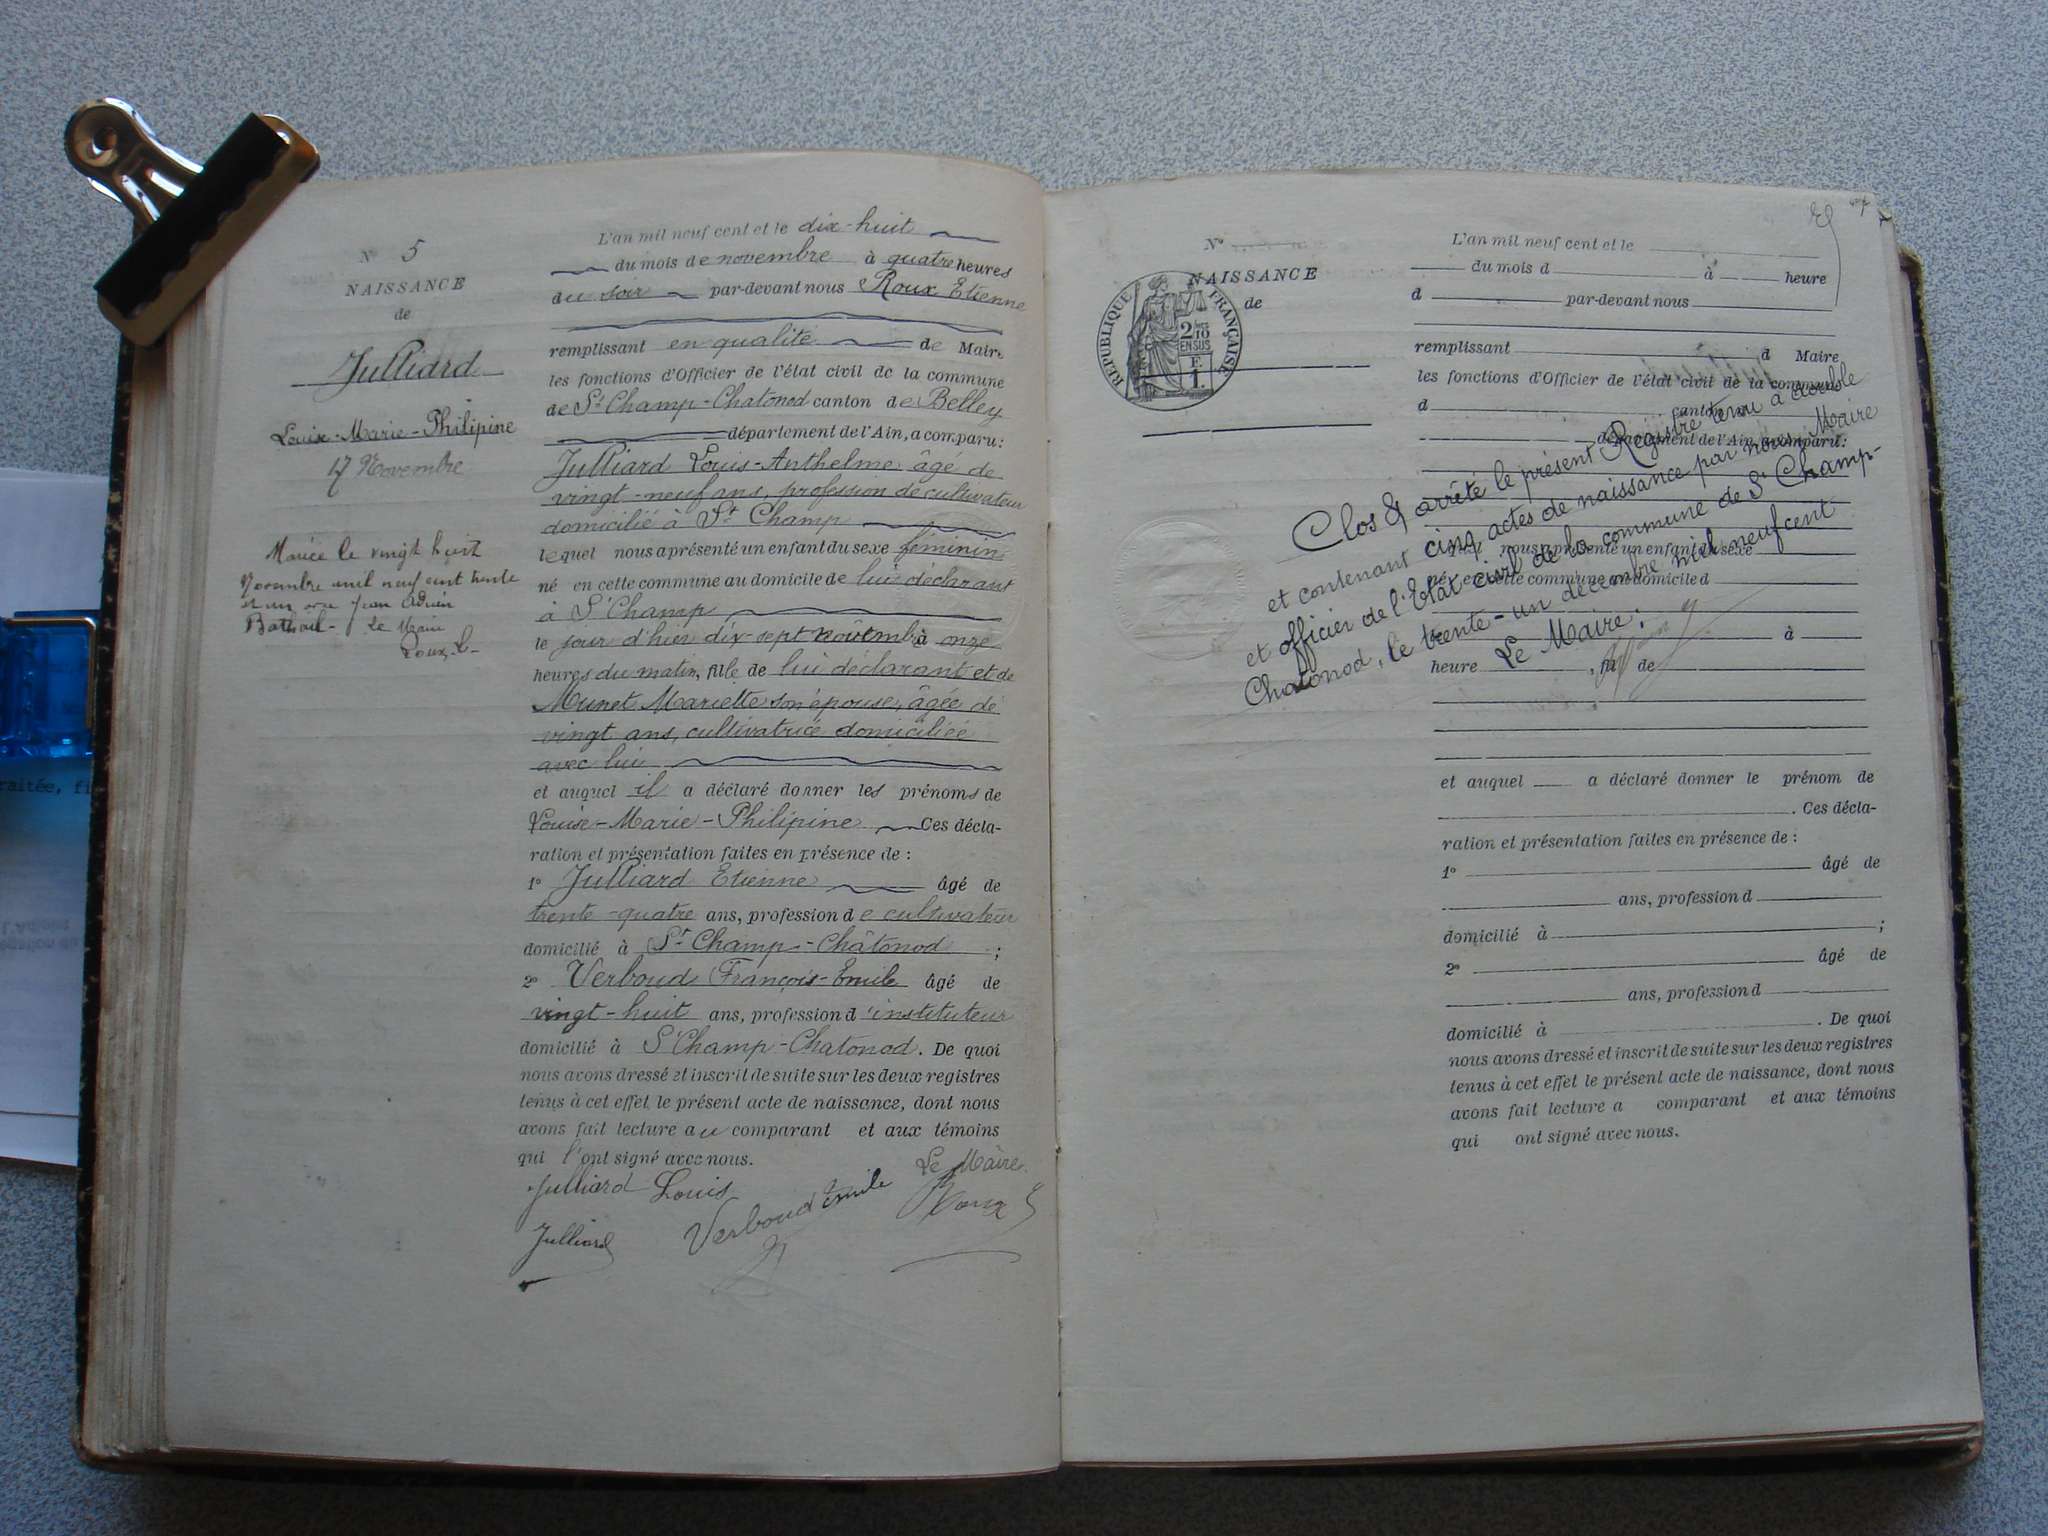 N° 5
NAISSANCE
de
Julliard
Louise-Marie-Philipine
17 Novembre
Mariée le vingt huit
Novembre mil neuf cent trente
et un avec Jean Adrien
le Maire
Roux E
L'an mil neuf cent et le dix-huit
du mois de novembre à quatre heures
du soir par-devant nous Roux Etienne
remplissant en qualité de Maire
les fonctions d'Officier de l'état civil de la commune
de St Champ-Chatonod canton de Belley
département de l'Ain, a comparu:
Julliard Louis-Anthelme âgé de
vingt-neuf ans, profession de cultivateur
domicilié à St Champ
lequel nous a présenté un enfant du sexe féminin
né en cette commune au domicile de lui déclarant
à St Champ
le jour d'hier dix-sept novembre à onze
heures du matin, fille de lui déclarant et de
Munet Mariette son épouse, âgée de
vingt ans, cultivatrice domiciliée
avec lui
et auquel il a déclaré donner les prénoms de
Louise-Marie-Philipine Ces décla-
ration et présentation faites en présence de :
1° Julliard Etienne âgé de
trente-quatre ans, profession de cultivateur
domicilié à St Champ-Châtonod ;
2° Verboud François-Emile âgé de
vingt-huit ans, profession d'instituteur
domicilié à St Champ-Chatonod. De quoi
nous avons dressé et inscrit de suite sur les deux registres
tenus à cet effet le présent acte de naissance, dont nous
avons fait lecture au comparant et aux témoins
qui l'ont signé avec nous.
Le Maire
Julliard Louis
Verboud Emile
Roux E
Julliard
N°
NAISSANCE
de
RÉPUBLIQUE FRANÇAISE
2/10
EN SUS
F
1.
L'an mil neuf cent et le
du mois d à heure
d par-devant nous
remplissant d Maire
les fonctions d'Officier de l'état civil de la commune
d canton
département de l'Ain, a comparu:
Clos & arrêté le présent Registre tenu à double
et contenant cinq actes de naissance par nous, Maire
et officier de l'Etat civil de la commune de St Champ-
Chatonod, le trente-un décembre mil neuf cent
Le Maire:
quel nous a présenté un enfant du sexe
né en cette commune au domicile d
le à
heure , fil de
et auquel a déclaré donner le prénom de
. Ces décla-
ration et présentation faites en présence de :
1° âgé de
ans, profession d
domicilié à ;
2° âgé de
ans, profession d
domicilié à . De quoi
nous avons dressé et inscrit de suite sur les deux registres
tenus à cet effet le présent acte de naissance, dont nous
avons fait lecture a comparant et aux témoins
qui ont signé avec nous.
raitée, fi